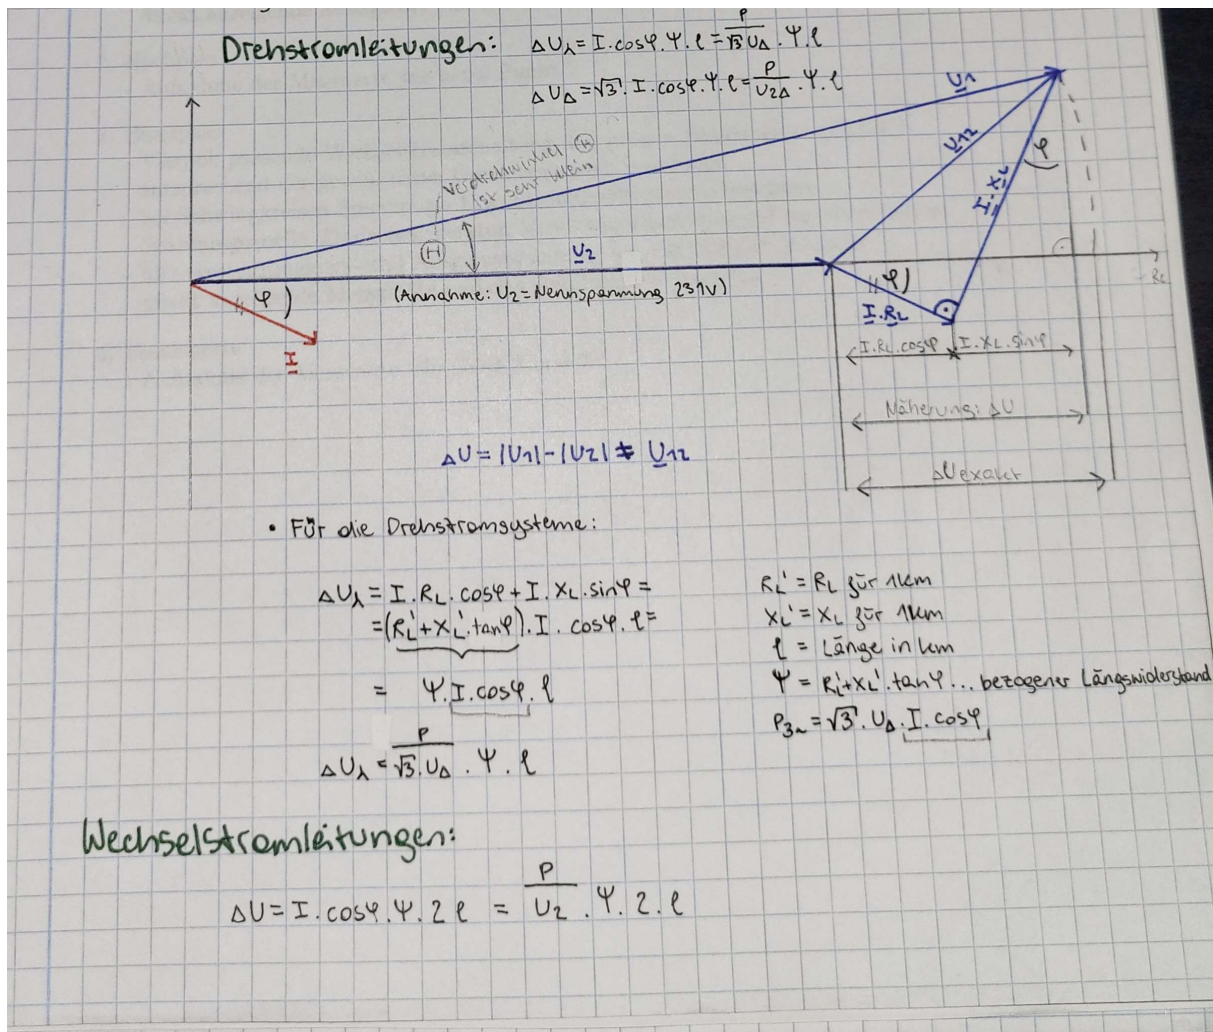 Drehstromleitungen: ΔU⅄ = I · cosφ · Ψ · l = P/(√3 U_Δ) · Ψ · l
ΔU_Δ = √3 · I · cosφ · Ψ · l = P/U_2Δ · Ψ · l
U1
U12
φ
I·XL
Verdrehwinkel Ⓗ
ist sehr klein
Ⓗ
U2
φ
(Annahme: U2 = Nennspannung 231V)
φ
I·RL
I
I·RL·cosφ
I·XL·sinφ
Näherung: ΔU
ΔUexakt
ΔU = |U1| - |U2| ≠ U12
• Für die Drehstromsysteme:
ΔU⅄ = I · RL · cosφ + I · XL · sinφ =
= (RL' + XL' · tanφ) · I · cosφ · l =
= Ψ · I · cosφ · l
ΔU⅄ = P/(√3 · U_Δ) · Ψ · l
RL' = RL für 1km
XL' = XL für 1km
l = Länge in km
Ψ = RL' + XL' · tanφ ... bezogener Längswiderstand
P3~ = √3 · U_Δ · I · cosφ
Wechselstromleitungen:
ΔU = I · cosφ · Ψ · 2 l = P/U2 · Ψ · 2 · l